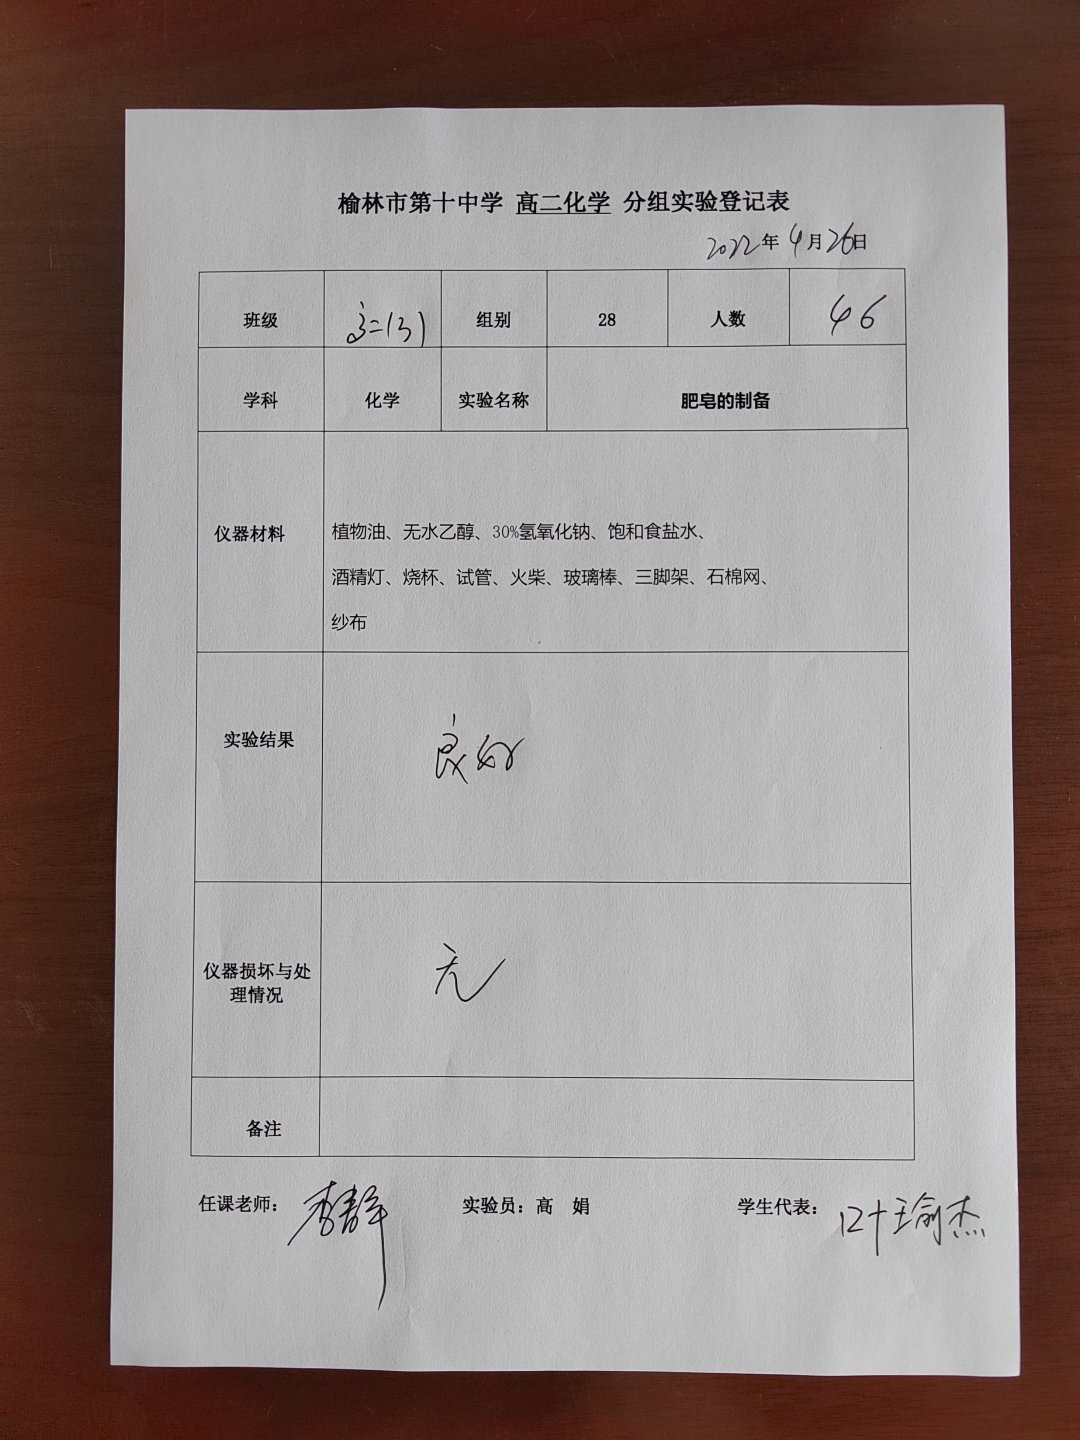 榆林市第十中学 高二化学 分组实验登记表
2022年 4月26日
班级 高二(3) 组别 28 人数 46
学科 化学 实验名称 肥皂的制备
仪器材料
植物油、无水乙醇、30%氢氧化钠、饱和食盐水、
酒精灯、烧杯、试管、火柴、玻璃棒、三脚架、石棉网、
纱布
实验结果 良好
仪器损坏与处
理情况
无
备注
任课老师： 李静 实验员：高 娟 学生代表： 叶瑜杰